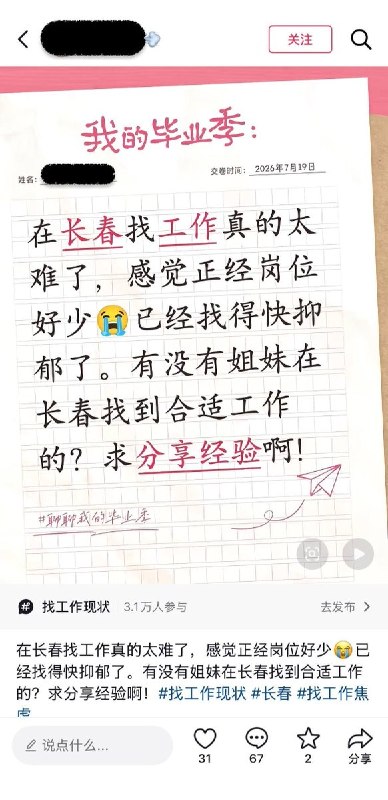 关注
我的毕业季：
姓名：
交卷时间： 2026年7月19日
在长春找工作真的太
难了，感觉正经岗位
好少😭已经找得快抑
郁了。有没有姐妹在
长春找到合适工作
的？求分享经验啊！
#聊聊我的毕业季
找工作现状 3.1万人参与 去发布
在长春找工作真的太难了，感觉正经岗位好少😭已
经找得快抑郁了。有没有姐妹在长春找到合适工作
的？求分享经验啊！#找工作现状 #长春 #找工作焦
虑
说点什么... 31 67 2 分享